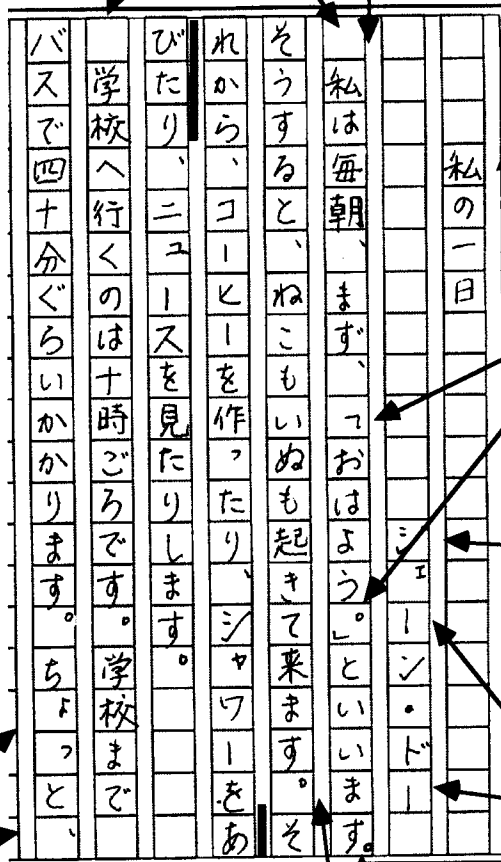 私の一日
シェーン・ドー
私は毎朝、まず、「おはよう。」といいます。
そうすると、ねこもいぬも起きて来ます。そ
れから、コーヒーを作ったり、シャワーをあ
びたり、ニュースを見たりします。
学校へ行くのは十時ごろです。学校まで
バスで四十分ぐらいかかります。ちょっと、